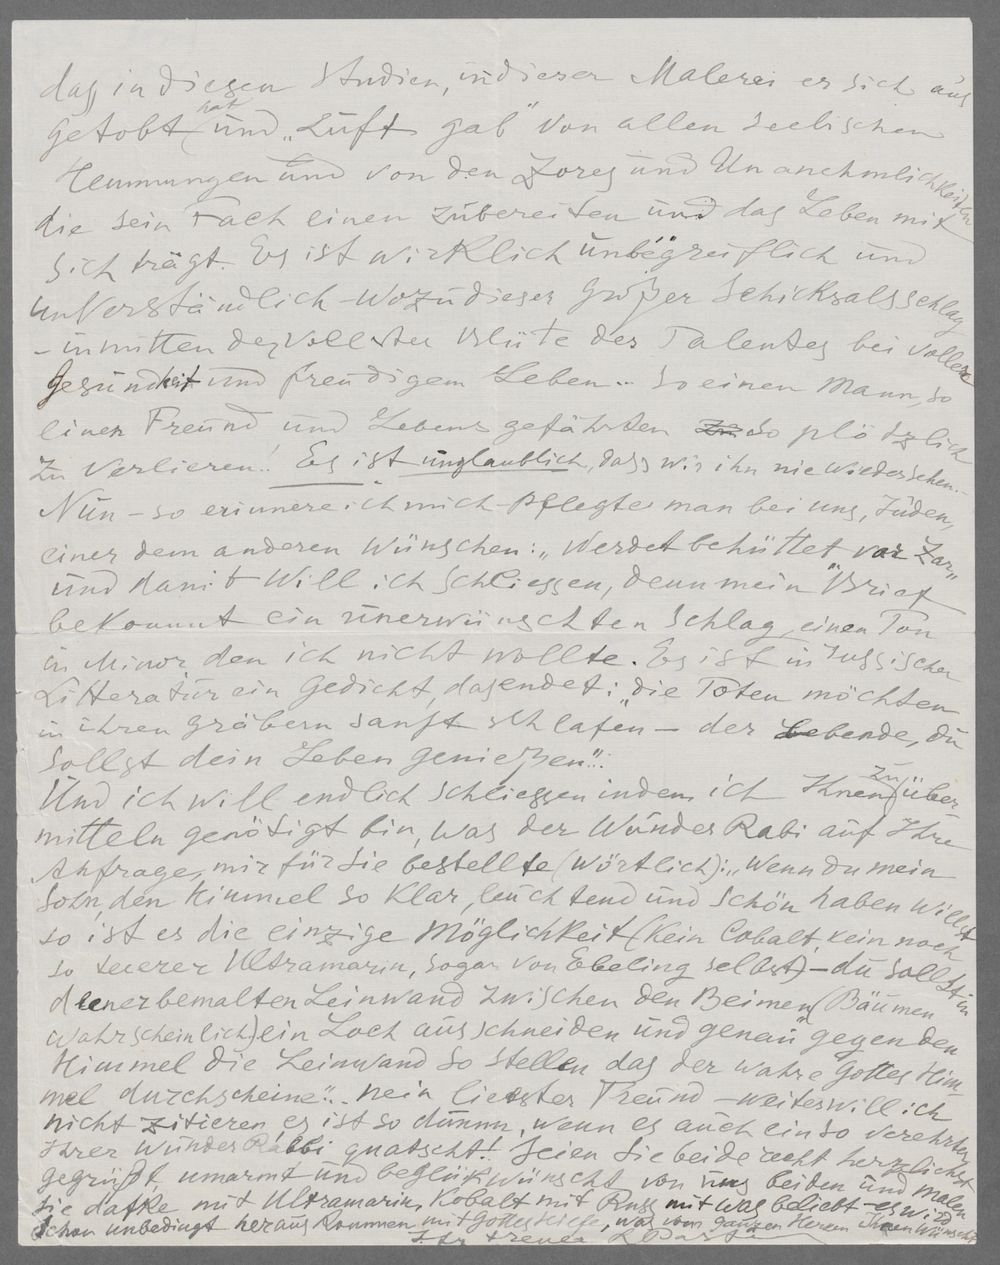 dass in diesen Studien, in dieser Malerei er sich aus
getobt hat und „Luft gab" von allen seelischen
Hemmungen und von den Zores und Unanehmlichkeiten
die sein Fach einen zubereiten und das Leben mit
sich trägt. Es ist wirklich unbegreiflich und
unverständlich – Wozu dieser großer Schicksalsschlag
– inmitten der vollster Blüte des Talentes bei vollere
Gesundheit und freudigem Leben.. So einen Mann, so
einen Freund und Lebensgefährten so plötzlich
zu verlieren! Es ist unglaublich, dass wir ihn nie wiedersehen.–
Nun – so erinnere ich mich – pflegte man bei uns, Juden,
einer dem anderen wünschen: „Werdet behüttet var Zar„
und damit will ich schliessen, denn mein Brief
bekommt ein unerwünschten Schlag, einen Ton
in Minor den ich nicht wollte. Es ist in russischer
Litteratur ein Gedicht, das endet: „die Toten möchten
in ihren gräbern sanft schlafen – der Lebende, du
sollst dein Leben genießen"..
Und ich will endlich schliessen indem ich Ihnen zu über-
mitteln genötigt bin, was der Wunder Rabi auf Ihre
Anfrage, mir für Sie bestellte (wörtlich): „Wenn du mein
Sohn, den Himmel so klar, leuchtend und schön haben willst
so ist es die einzige Möglichkeit (kein Cobalt, kein noch
so teuerer Ultramarin, sogar von Ebeling selbst) – du sollst in
deener bemalten Leinwand zwischen den Beimen (Bäumen
wahrscheinlich) ein Loch ausschneiden und genau gegen den
Himmel die Leinwand so stellen das der wahre Gottes Him-
mel durchscheine".. nein liebster Freund – weiter will ich
nicht zitieren, es ist so dumm, wenn es auch ein so verehrter
Ihrer Wunder Rabbi quatscht! Seien Sie beide recht herzlichst
gegrüßt, umarmt und beglükwünscht von uns beiden und malen
Sie dafke mit Ultramarin, Kobalt mit Russ mit was beliebt – es wird
schon unbedingt herauskommen mit Gottes Hilfe, was vom ganzen Herzen Ihnen wünscht
Ihr treuer